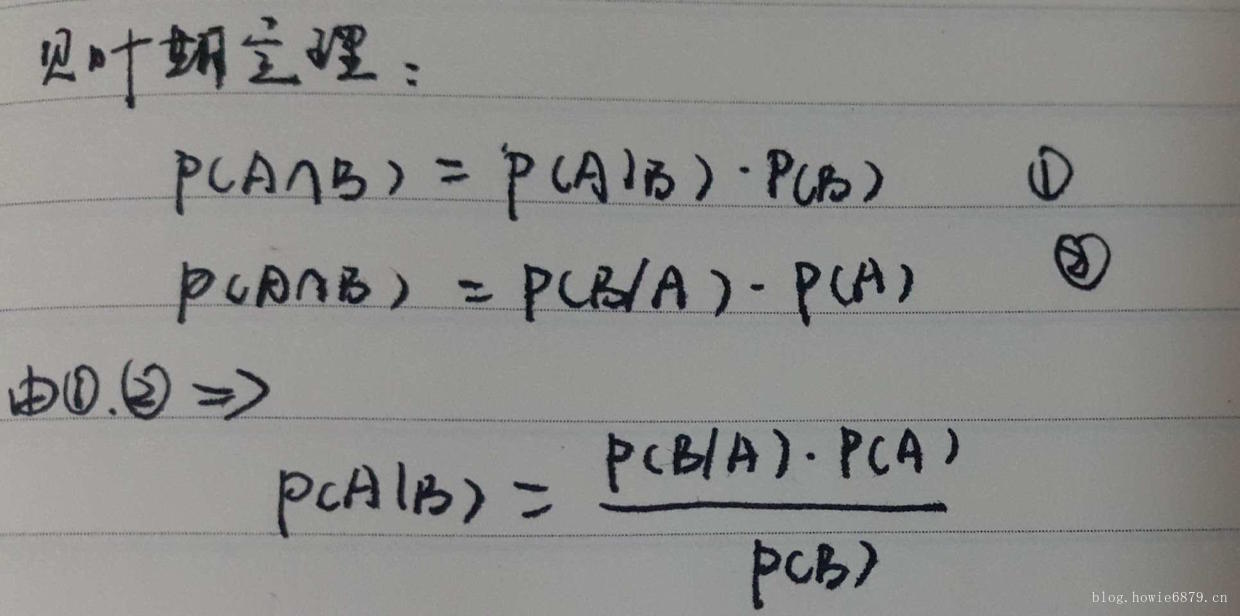 贝叶斯定理:
P(A∩B) = P(A|B)·P(B) ①
P(A∩B) = P(B|A)·P(A) ②
由①.② =>
P(A|B) = P(B|A)·P(A)
P(B)
blog.howie6879.cn